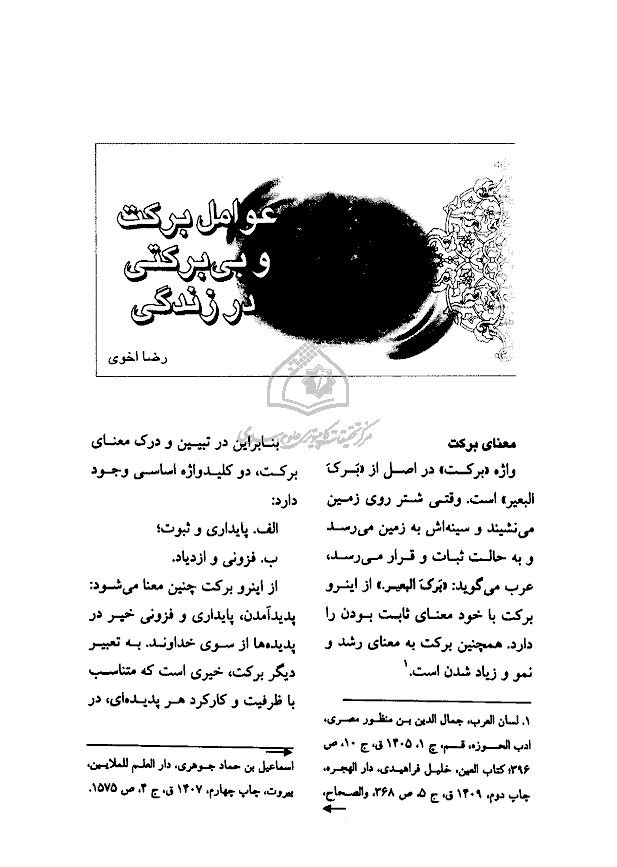 عوامل برکت
و بی‌برکتی
در زندگی
رضا اخوی
معنای برکت
واژه «برکت» در اصل از «بَرکَ
البعیر» است. وقتی شتر روی زمین
می‌نشیند و سینه‌اش به زمین می‌رسد
و به حالت ثبات و قرار می‌رسد،
عرب می‌گوید: «بَرکَ البعیر.» از اینرو
برکت با خود معنای ثابت بودن را
دارد. همچنین برکت به معنای رشد و
نمو و زیاد شدن است.۱
۱. لسان العرب، جمال الدین بن منظور مصری،
ادب الحوزه، قسم، چ ۱، ۱۴۰۵ ق، ج ۱۰، ص
۳۹۶؛ کتاب العین، خلیل فراهیدی، دار الهجره،
چاپ دوم، ۱۴۰۹ ق، ج ۵، ص ۳۶۸، والصحاح،
بنابراین در تبیین و درک معنای
برکت، دو کلیدواژه اساسی وجود
دارد:
الف. پایداری و ثبوت؛
ب. فزونی و ازدیاد.
از اینرو برکت چنین معنا می‌شود:
پدیدآمدن، پایداری و فزونی خیر در
پدیده‌ها از سوی خداوند. به تعبیر
دیگر برکت، خیری است که متناسب
با ظرفیت و کارکرد هر پدیده‌ای، در
اسماعیل بن حماد جوهری، دار العلم للملایین،
بیروت، چاپ چهارم، ۱۴۰۷ ق، ج ۴، ص ۱۵۷۵.